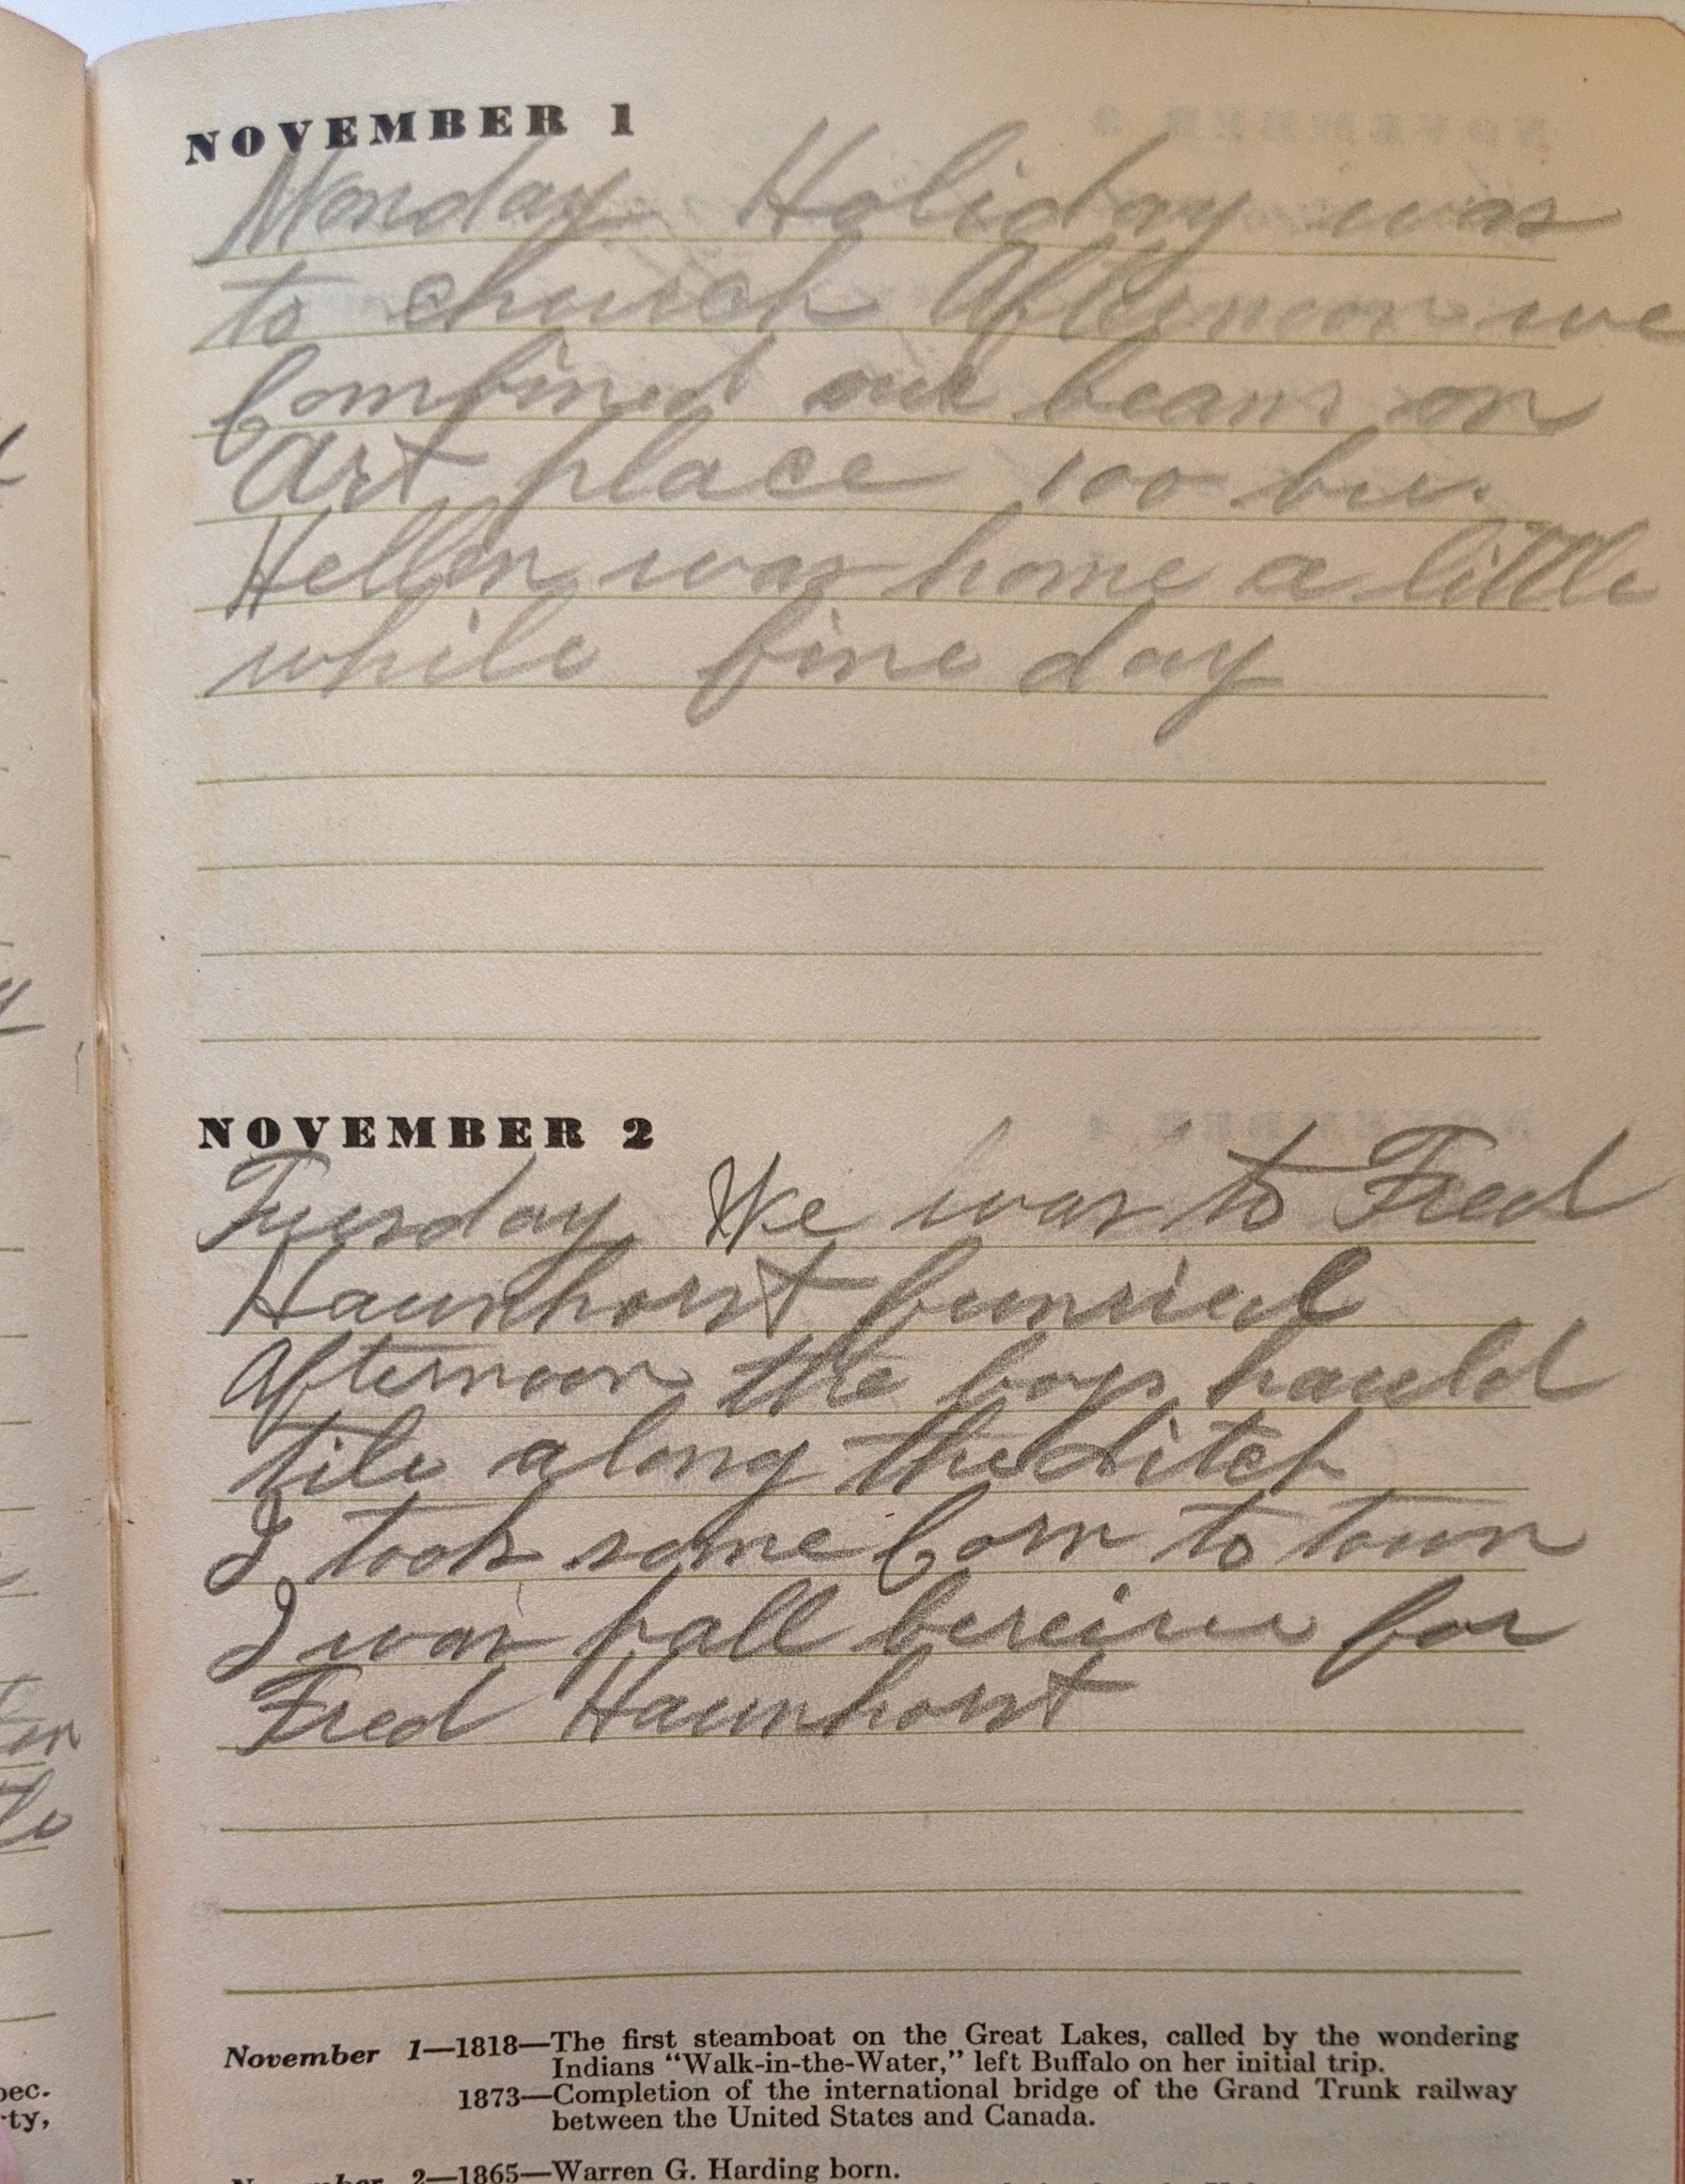 NOVEMBER 1
Monday Holiday was
to church Afternoon we
Combined our beans on
Art place 100 bu.
Hellen was home a little
while fine day
NOVEMBER 2
Tuesday We was to Fred
Haunhorst funrieal
Afternoon the boys hauld
tile along the ditch
I took some Corn to town
I was pall bereiur for
Fred Haunhorst
November 1—1818—The first steamboat on the Great Lakes, called by the wondering
Indians “Walk-in-the-Water,” left Buffalo on her initial trip.
1873—Completion of the international bridge of the Grand Trunk railway
between the United States and Canada.
November 2—1865—Warren G. Harding born.